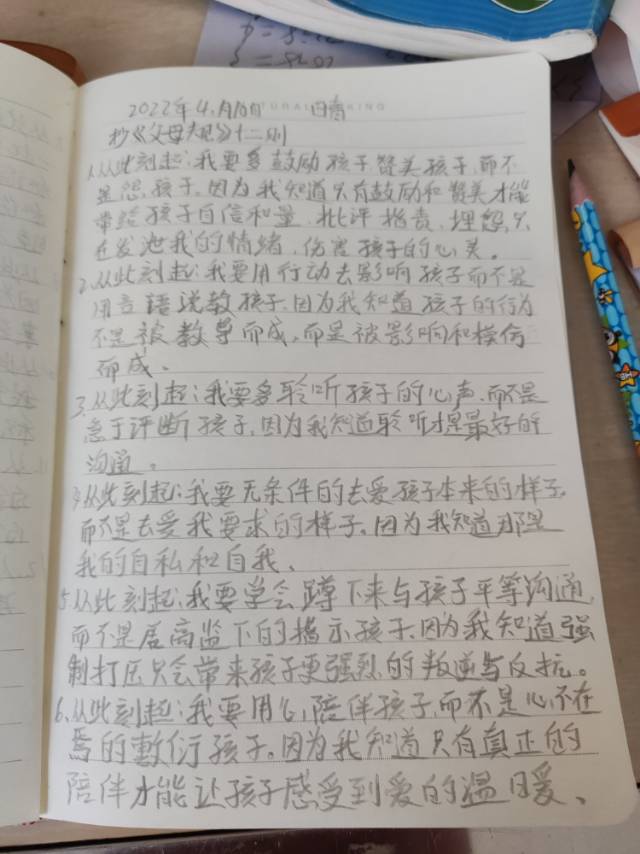 2022年4月10日 日青
抄《父母大规》十二则
1.从此刻起:我要多鼓励孩子、赞美孩子,而不
是怨孩子。因为我知道只有鼓励和赞美才能
带给孩子自信和量,批评指责、埋怨只
在发泄我的情绪,伤害孩子的心灵。
2.从此刻起:我要用行动去影响孩子而不是
用言语说教孩子,因为我知道孩子的行为
不是被教导而成,而是被影响和模仿
而成、
3、从此刻起:我要多聆听孩子的心声,而不是
急于评断孩子,因为我知道聆听才是最好的
沟通。
4从此刻起:我要无条件的去爱孩子本来的样子,
而不是去爱我要求的样子,因为我知道那是
我的自私和自我、
5从此刻起:我要学会蹲下来与孩子平等沟通,
而不是居高监下的指示孩子,因为我知道强
制打压只会带来孩子更强烈的叛逆与反抗。
6、从此刻起:我要用心陪伴孩子,而不是心不在
焉的敷衍孩子。因为我知道只有真正的
陪伴才能让孩子感受到爱的温暖、